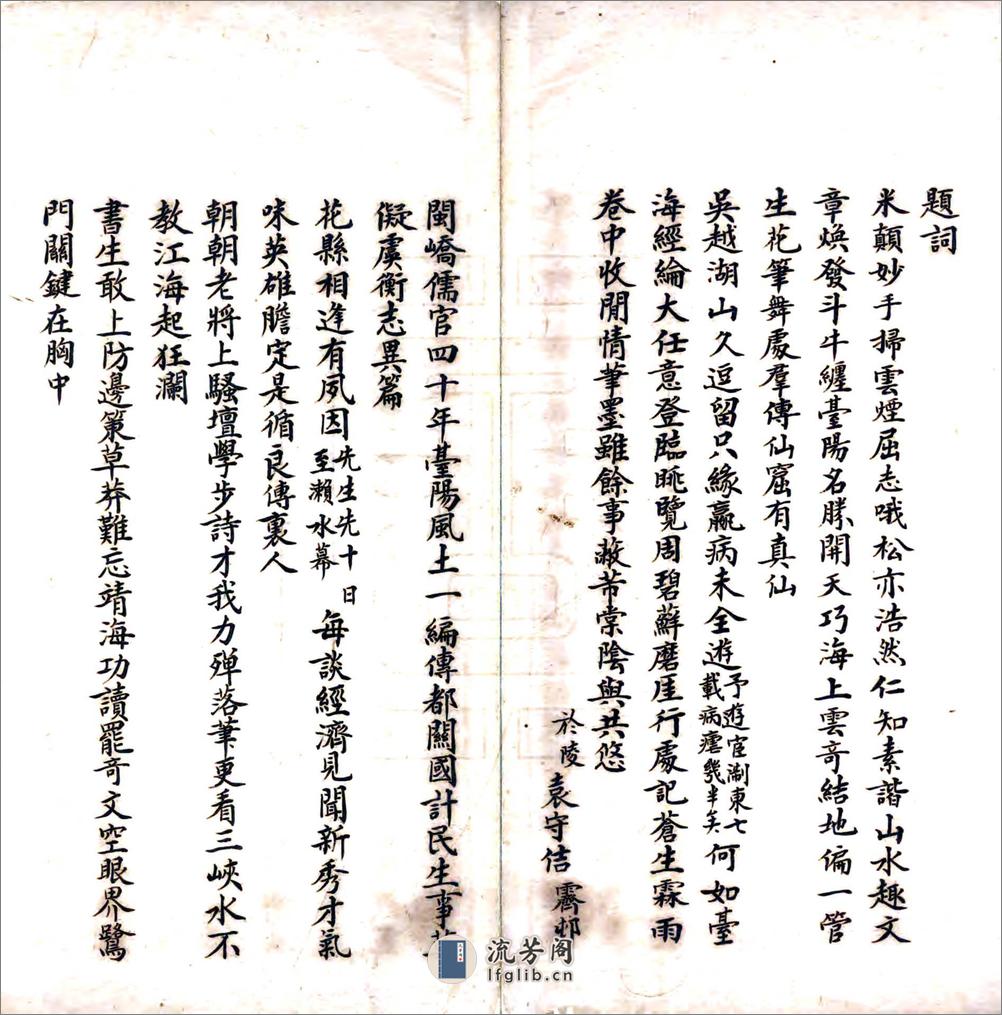 題詞
米顛妙手掃雲煙屈志哦松亦浩然仁知素諧山水趣文
章煥發斗牛纏臺陽名勝開天巧海上雲奇結地偏一管
生花筆舞處羣傳仙窟有真仙
吳越湖山久逗留只緣羸病未全遊予遊宦淛東七載病瘧幾半矣何如臺
海經綸大任意登臨眺覽周碧蘚磨厓行處記蒼生霖雨
卷中收閒情筆墨雖餘事蔽芾棠陰與共悠
於陵袁守佶霽邨
閩嶠儒官四十年臺陽風土一編傳都關國計民生事
儗虞衡志異篇
花縣相逢有夙因先生先十日至瀨水幕每談經濟見聞新秀才氣
味英雄膽定是循良傳裏人
朝朝老將上騷壇學步詩才我力殫落筆更看三峽水不
教江海起狂瀾
書生敢上防邊策草莽難忘靖海功讀罷奇文空眼界鷺
門關鍵在胸中
流芳阁
lfglib.cn